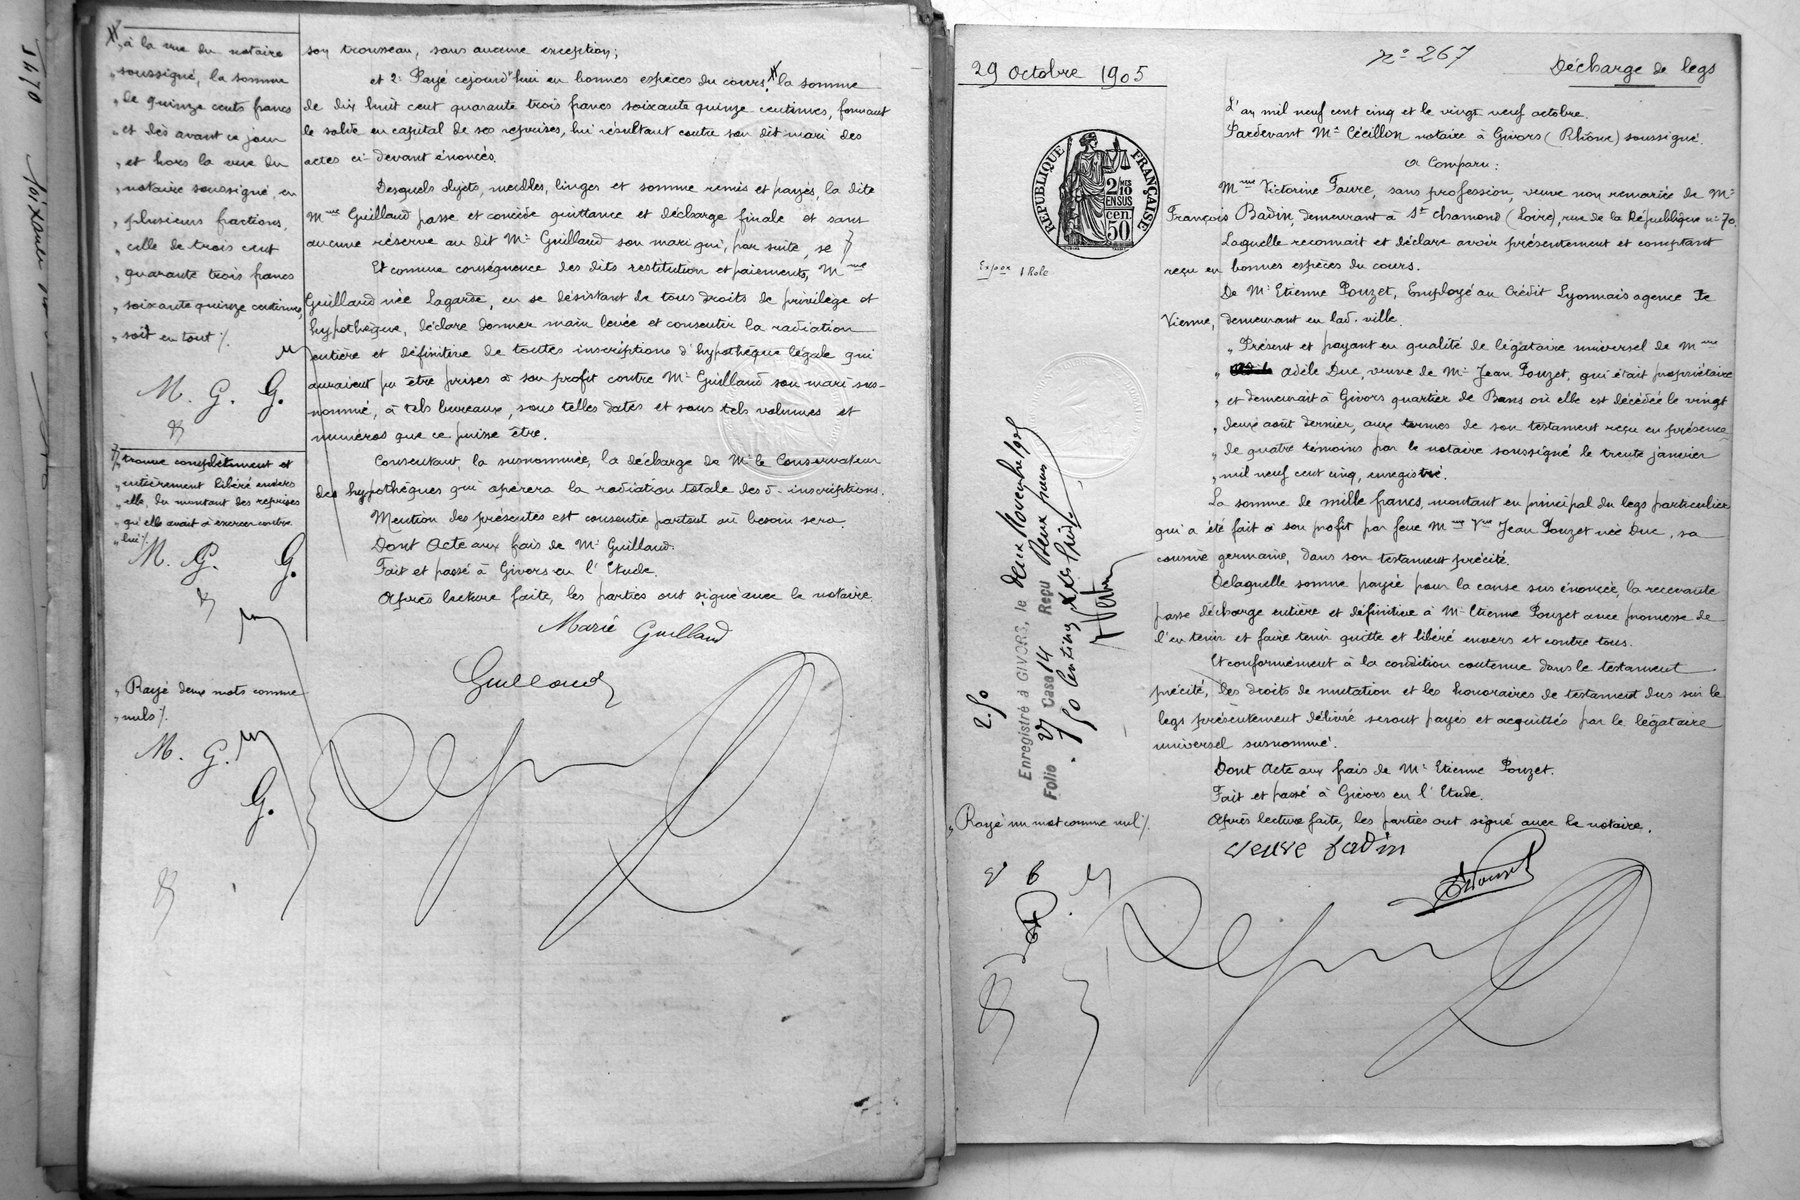 à la vue du notaire
„ soussigné, la somme
„ de quinze cents francs
„ et dès avant ce jour
„ et hors la vue du
„ notaire soussigné, en
„ plusieurs fractions,
„ celle de trois cent
„ quarante trois francs
„ soixante quinze centimes,
„ soit en tout ./.
M. G. G.
„ trouve complètement et
„ entièrement libéré envers
„ elle, du montant des reprises
„ qu'elle avait à exercer contre
„ lui ./.
M. G. G.
„ Rayé deux mots comme
„ nuls ./.
M. G.
G.
son trousseau, sans aucune exception;
et 2° Payé cejourd'hui en bonnes espèces du cours, la somme
de dix huit cent quarante trois francs soixante quinze centimes, formant
le solde en capital de ses reprises, lui résultant contre son dit mari des
actes ci-devant énoncés.
Desquels objets, meubles, linges et somme remis et payés, la dite
Mme Guilland passe et concède quittance et décharge finale et sans
aucune réserve au dit Mr Guilland son mari qui, par suite, se
Et comme conséquence des dits restitution et paiements, Mme
Guilland née Lagarde, en se désistant de tous droits de privilège et
hypothèque, déclare donner main levée et consentir la radiation
entière et définitive de toutes inscriptions d'hypothèque légale qui
auraient pu être prises à son profit contre Mr Guilland son mari sus-
nommé, à tels bureaux, sous telles dates et sous tels volumes et
numéros que ce puisse être.
Consentant, la susnommée, la décharge de Mr le Conservateur
des hypothèques qui opèrera la radiation totale des d. inscriptions.
Mention des présentes est consentie partout où besoin sera.
Dont Acte aux frais de Mr Guilland.
Fait et passé à Givors en l'Etude.
Après lecture faite, les parties ont signé avec le notaire.
Marie Guilland
Guilland
29 octobre 1905
N° 267
Décharge de legs
RÉPUBLIQUE FRANÇAISE
2/10 EN SUS
50 cen
Expon 1 Role
L'an mil neuf cent cinq et le vingt neuf octobre.
Pardevant Me Cécillon notaire à Givors (Rhône) soussigné.
a Comparu:
Mme Victorine Faure, sans profession, veuve non remariée de Mr
François Badin, demeurant à St Chamond (Loire), rue de la République n° 70.
Laquelle reconnait et déclare avoir présentement et comptant
reçu en bonnes espèces du cours.
De Mr Etienne Pouzet, Employé au Crédit Lyonnais agence de
Vienne, demeurant en lad. ville.
„ Présent et payant en qualité de légataire universel de Mme
„ Adèle Duc, veuve de Mr Jean Pouzet, qui était propriétaire
„ et demeurait à Givors quartier de Bans où elle est décédée le vingt
„ deux août dernier, aux termes de son testament reçu en présence
„ de quatre témoins par le notaire soussigné le trente janvier
„ mil neuf cent cinq, enregistré.
La somme de mille francs, montant en principal du legs particulier
qui a été fait à son profit par feue Mme Vve Jean Pouzet née Duc, sa
cousine germaine, dans son testament précité.
De laquelle somme payée pour la cause sus énoncée, la recevante
passe décharge entière et définitive à Mr Etienne Pouzet avec promesse de
l'en tenir et faire tenir quitte et libéré envers et contre tous.
Et conformément à la condition contenue dans le testament
précité, les droits de mutation et les honoraires de testament dus sur le
legs présentement délivré seront payés et acquittés par le légataire
universel susnommé.
Dont Acte aux frais de Mr Etienne Pouzet.
Fait et passé à Givors en l'Etude.
Après lecture faite, les parties ont signé avec le notaire.
veuve Badin
Pouzet
2.50
Enregistré à GIVORS, le deux Novembre 1905
Folio 21 Case 14 Reçu deux francs
50 centimes
„ Rayé un mot comme nul ./.
V B